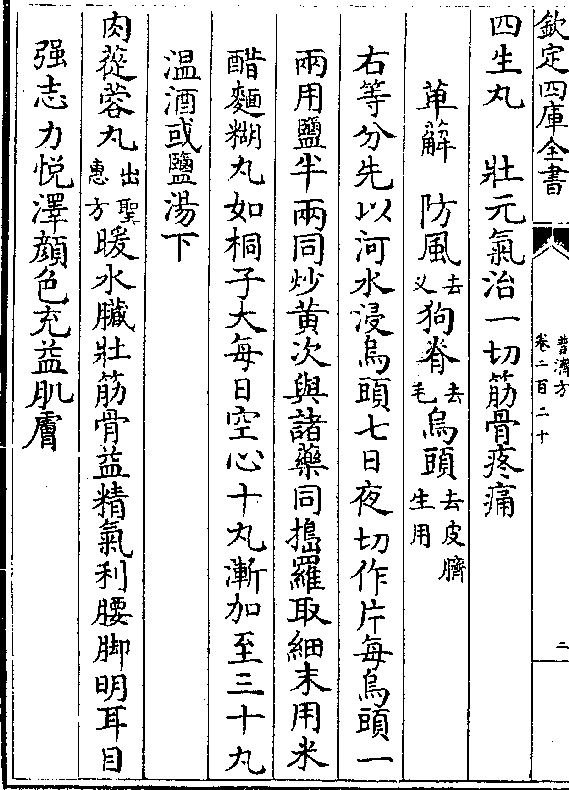 欽定四庫全書
普濟方
卷二百二十
二
四生丸　壯元氣治一切筋骨疼痛
萆薢　防風去叉狗脊去毛烏頭去皮臍生用
右等分先以河水浸烏頭七日夜切作片每烏頭一
兩用鹽半兩同炒黄次與諸藥同搗羅取細末用米
醋麵糊丸如桐子大每日空心十丸漸加至三十丸
温酒或鹽湯下
肉蓯蓉丸出聖惠方暖水臟壯筋骨益精氣利腰脚明耳目
强志力悦澤顔色充益肌膚